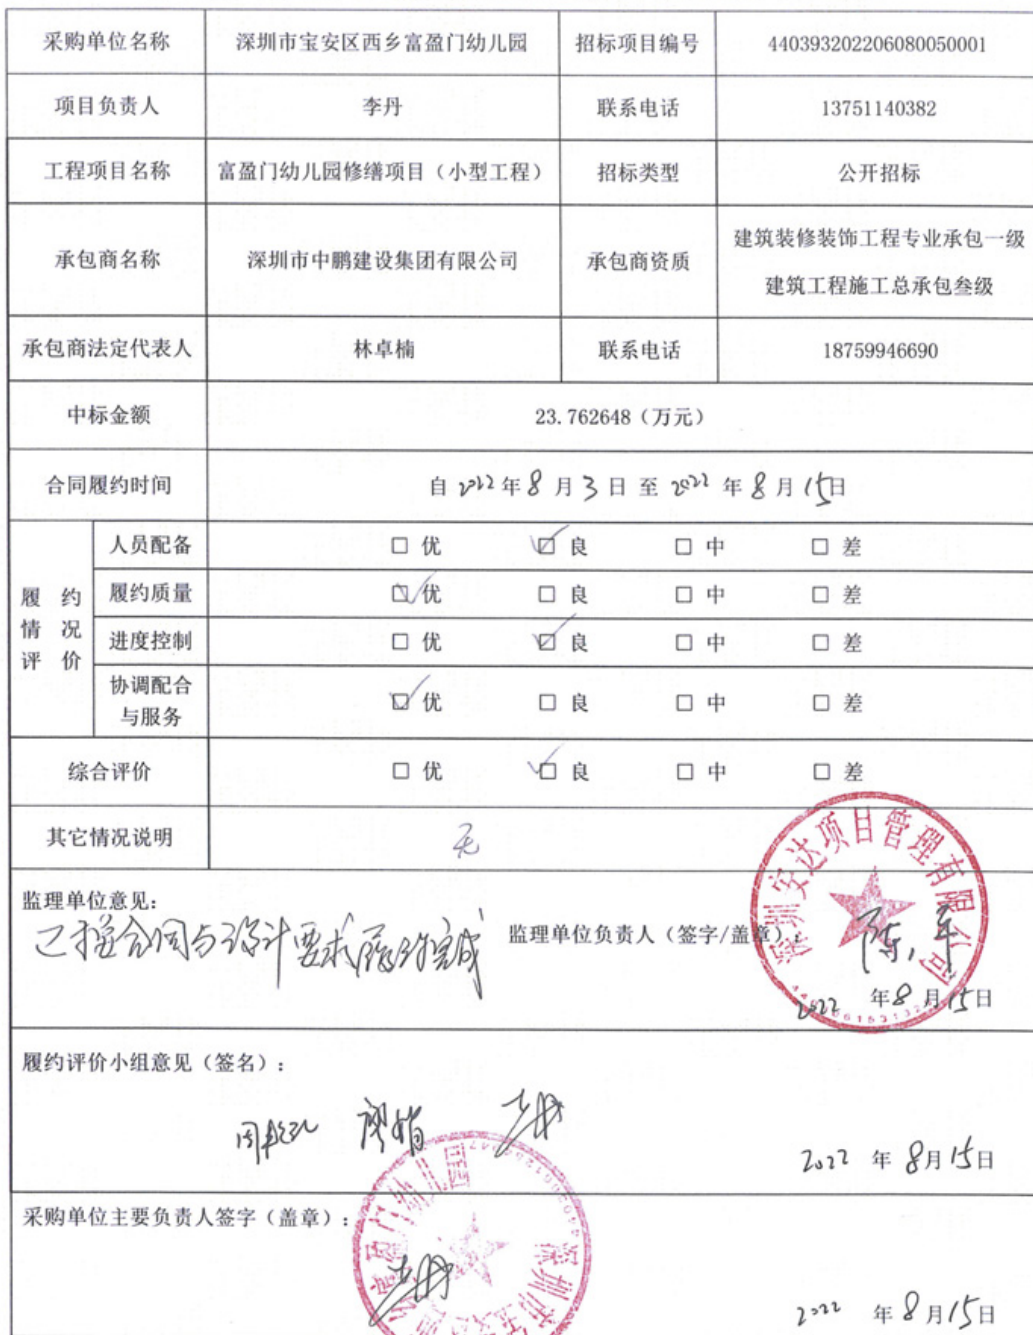 采购单位名称 深圳市宝安区西乡富盈门幼儿园 招标项目编号 440393202206080050001
项目负责人 李丹 联系电话 13751140382
工程项目名称 富盈门幼儿园修缮项目（小型工程） 招标类型 公开招标
承包商名称 深圳市中鹏建设集团有限公司 承包商资质 建筑装修装饰工程专业承包一级
建筑工程施工总承包叁级
承包商法定代表人 林卓楠 联系电话 18759946690
中标金额 23.762648（万元）
合同履约时间 自 2022 年 8 月 3 日 至 2022 年 8 月 15 日
履约情况评价
人员配备 □ 优 ☑ 良 □ 中 □ 差
履约质量 ☑ 优 □ 良 □ 中 □ 差
进度控制 □ 优 ☑ 良 □ 中 □ 差
协调配合
与服务 ☑ 优 □ 良 □ 中 □ 差
综合评价 □ 优 ☑ 良 □ 中 □ 差
其它情况说明 无
监理单位意见：
已按合同与设计要求履约完成 监理单位负责人（签字/盖章）：
深圳安达项目管理有限公司
2022 年 8 月 15 日
履约评价小组意见（签名）：
2022 年 8 月 15 日
采购单位主要负责人签字（盖章）：
2022 年 8 月 15 日